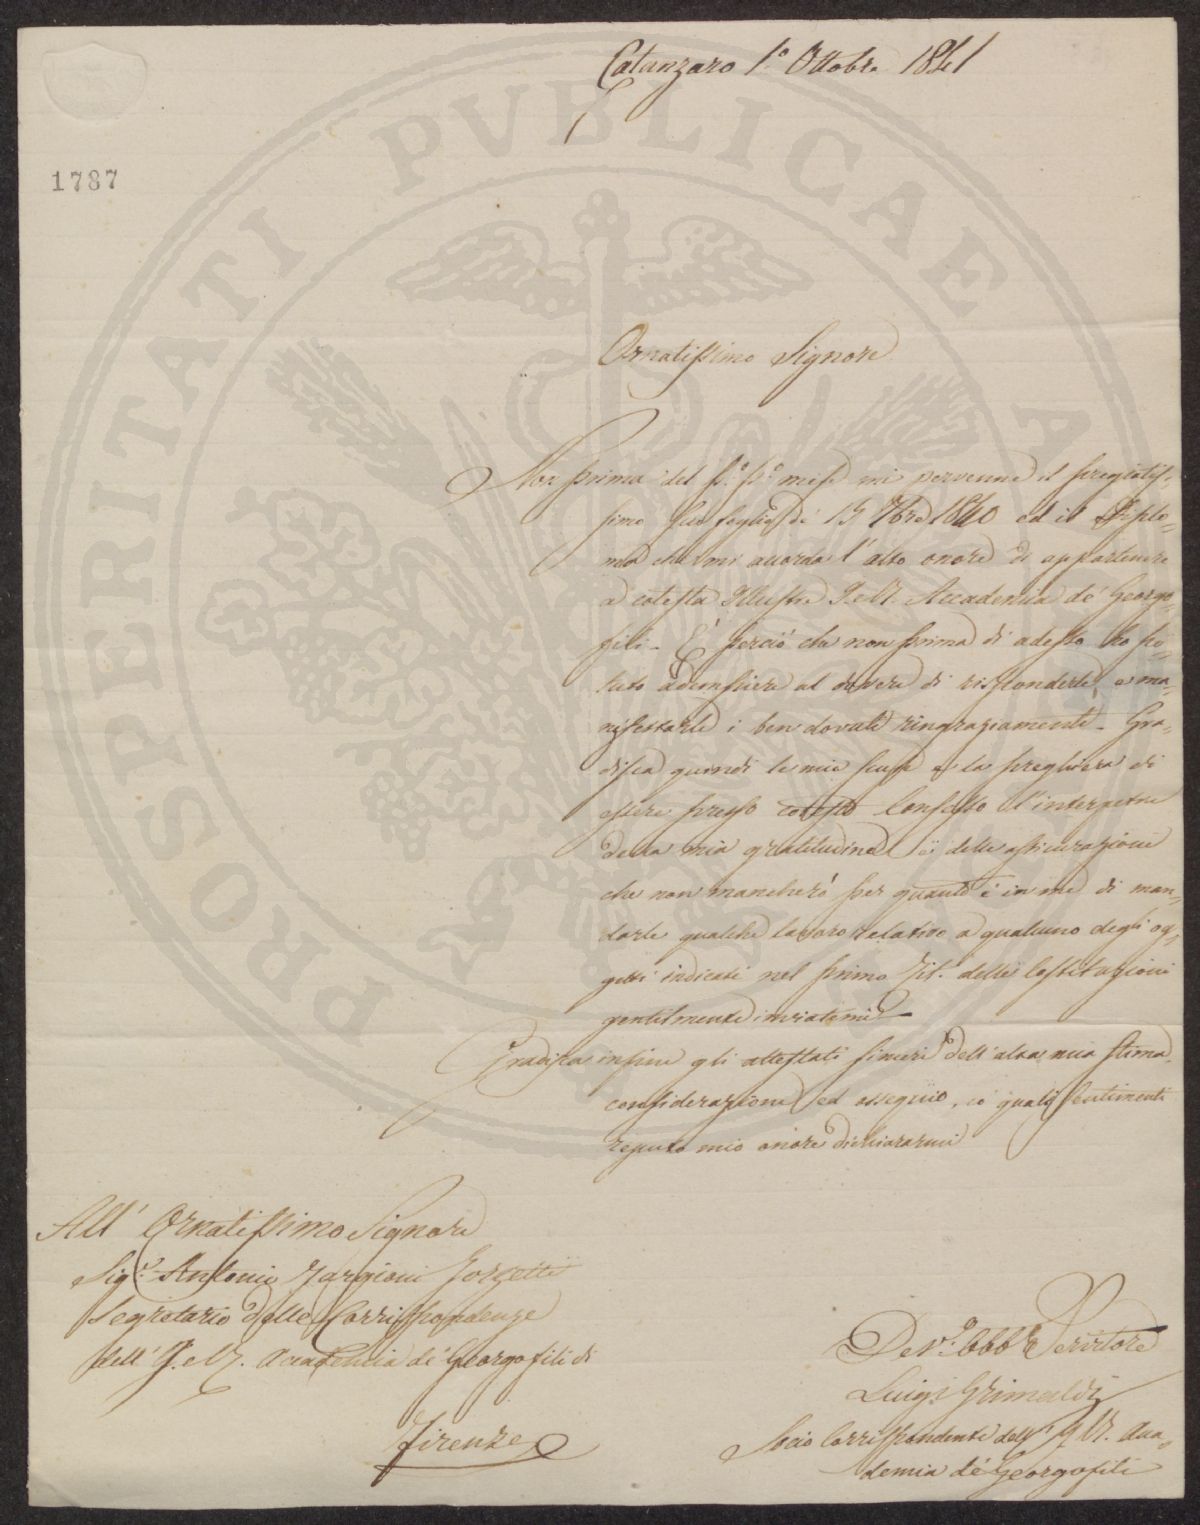 Catanzaro 1.° Ottobre 1841
1787
PROSPERITATI PVBLICAE A
Ornatissimo Signore
Non prima del p.° p.° mese mi pervenne il pregiatis=
simo suo foglio de' 15 7bre 1840 ed il Diplo=
ma che mi accorda l'alto onore di appartenere
a cotesta Illustre I. e R. Accademia de' Georgo=
fili. E' perciò che non prima di adesso ho po=
tuto adempiere al dovere di risponderle, e ma=
nifestarle i ben dovuti ringraziamenti. Gra=
disca quindi le mie scuse e la preghiera di
essere presso cotesto Consesso l'interpetre
della mia gratitudine e delle assicurazioni
che non mancherò per quanto è in me di man=
darle qualche lavoro relativo a qualcuno degli og=
getti indicati nel primo Tit. delle Costituzioni
gentilmente inviatemi.
Gradisca infine gli attestati sinceri dell'alta mia stima,
considerazione ed ossequio, co' quali sentimenti
reputo mio onore dichiararmi
All' Ornatissimo Signore
Sig.r Antonio Targioni Tozzetti
Segretario delle Corrispondenze
dell' I. e R. Accademia de' Georgofili di
Firenze
Dev.° Obb.° Servitore
Luigi Grimaldi
Socio Corrispondente dell' I. R. Acca=
demia de' Georgofili